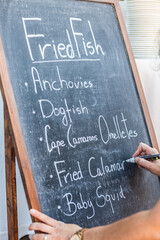 Fried Fish
· Anchovies
· Dogfish
· Cape Camarons Omelletes
· Fried Calamari
· Baby Squid